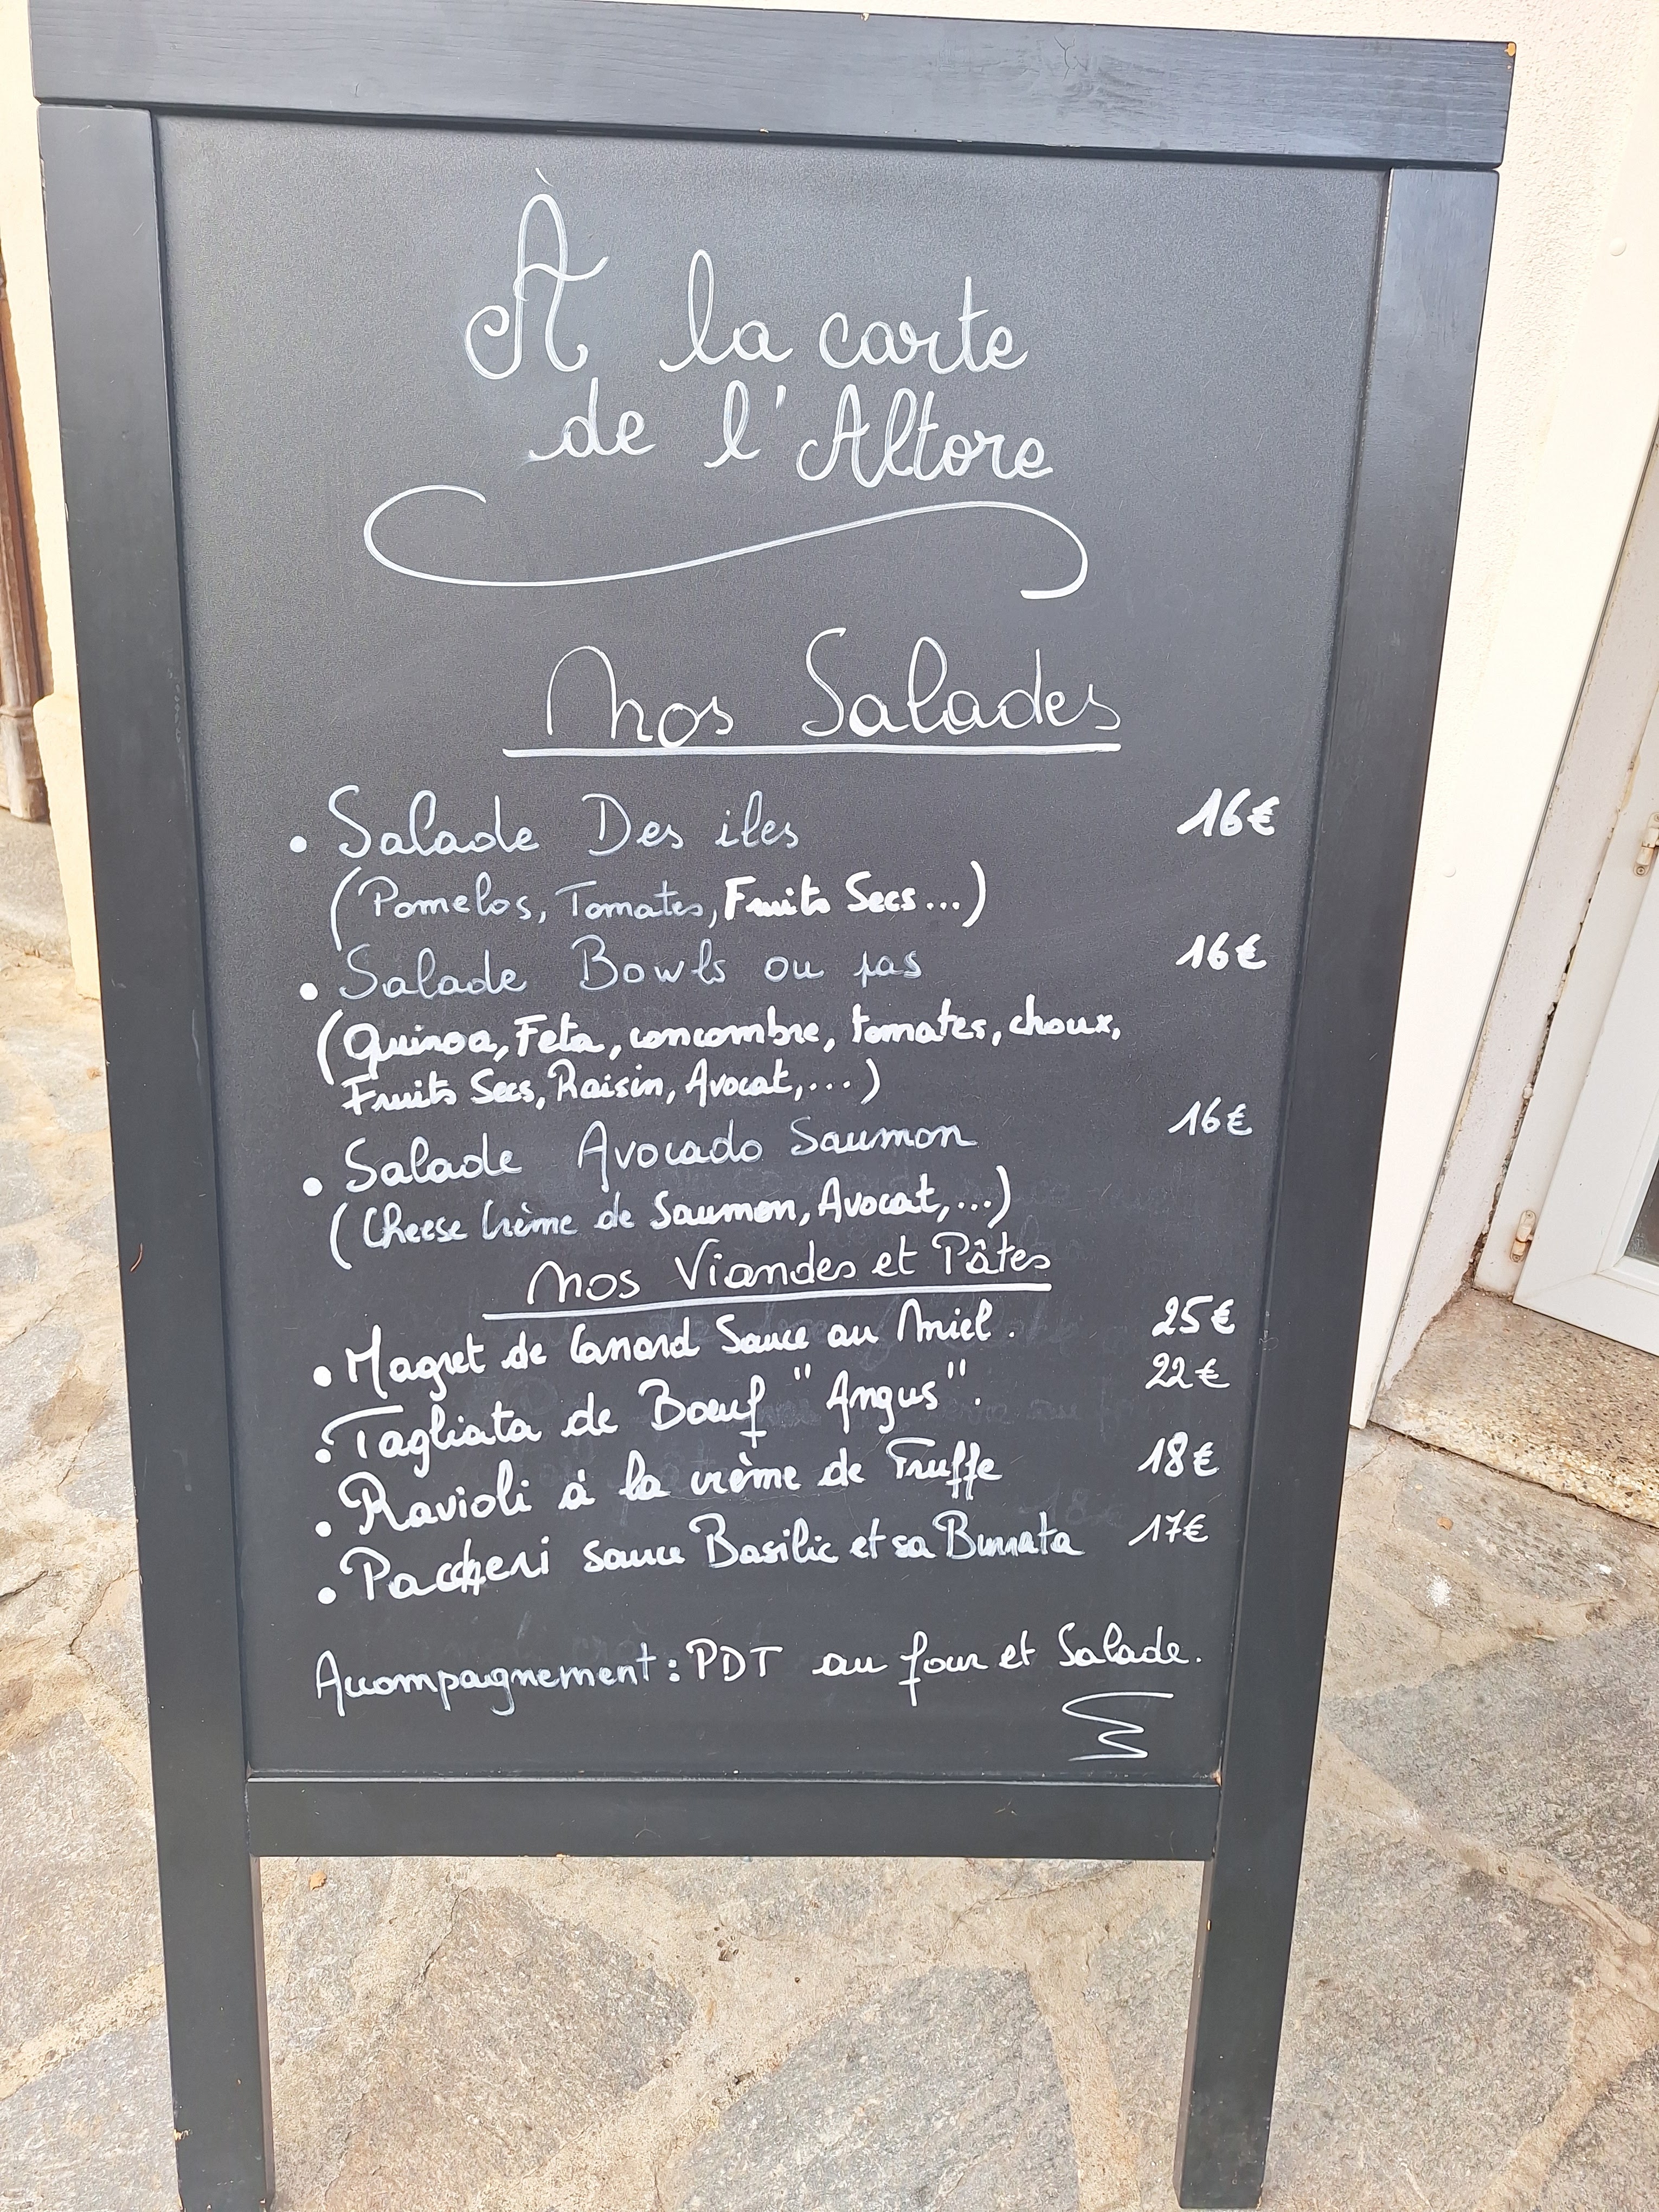 À la carte
de l'Altore
Nos Salades
• Salade Des iles 16€
(Pomelos, Tomates, Fruits Secs...)
• Salade Bowls ou pas 16€
(Quinoa, Feta, concombre, tomates, choux,
Fruits Secs, Raisin, Avocat,...)
• Salade Avocado Saumon 16€
(Cheese Crème de Saumon, Avocat,...)
Nos Viandes et Pâtes
• Magret de Canard Sauce au Miel. 25€
• Tagliata de Bœuf "Angus". 22€
• Ravioli à la crème de Truffe 18€
• Paccheri sauce Basilic et sa Burrata 17€
Accompagnement : PDT au four et Salade.